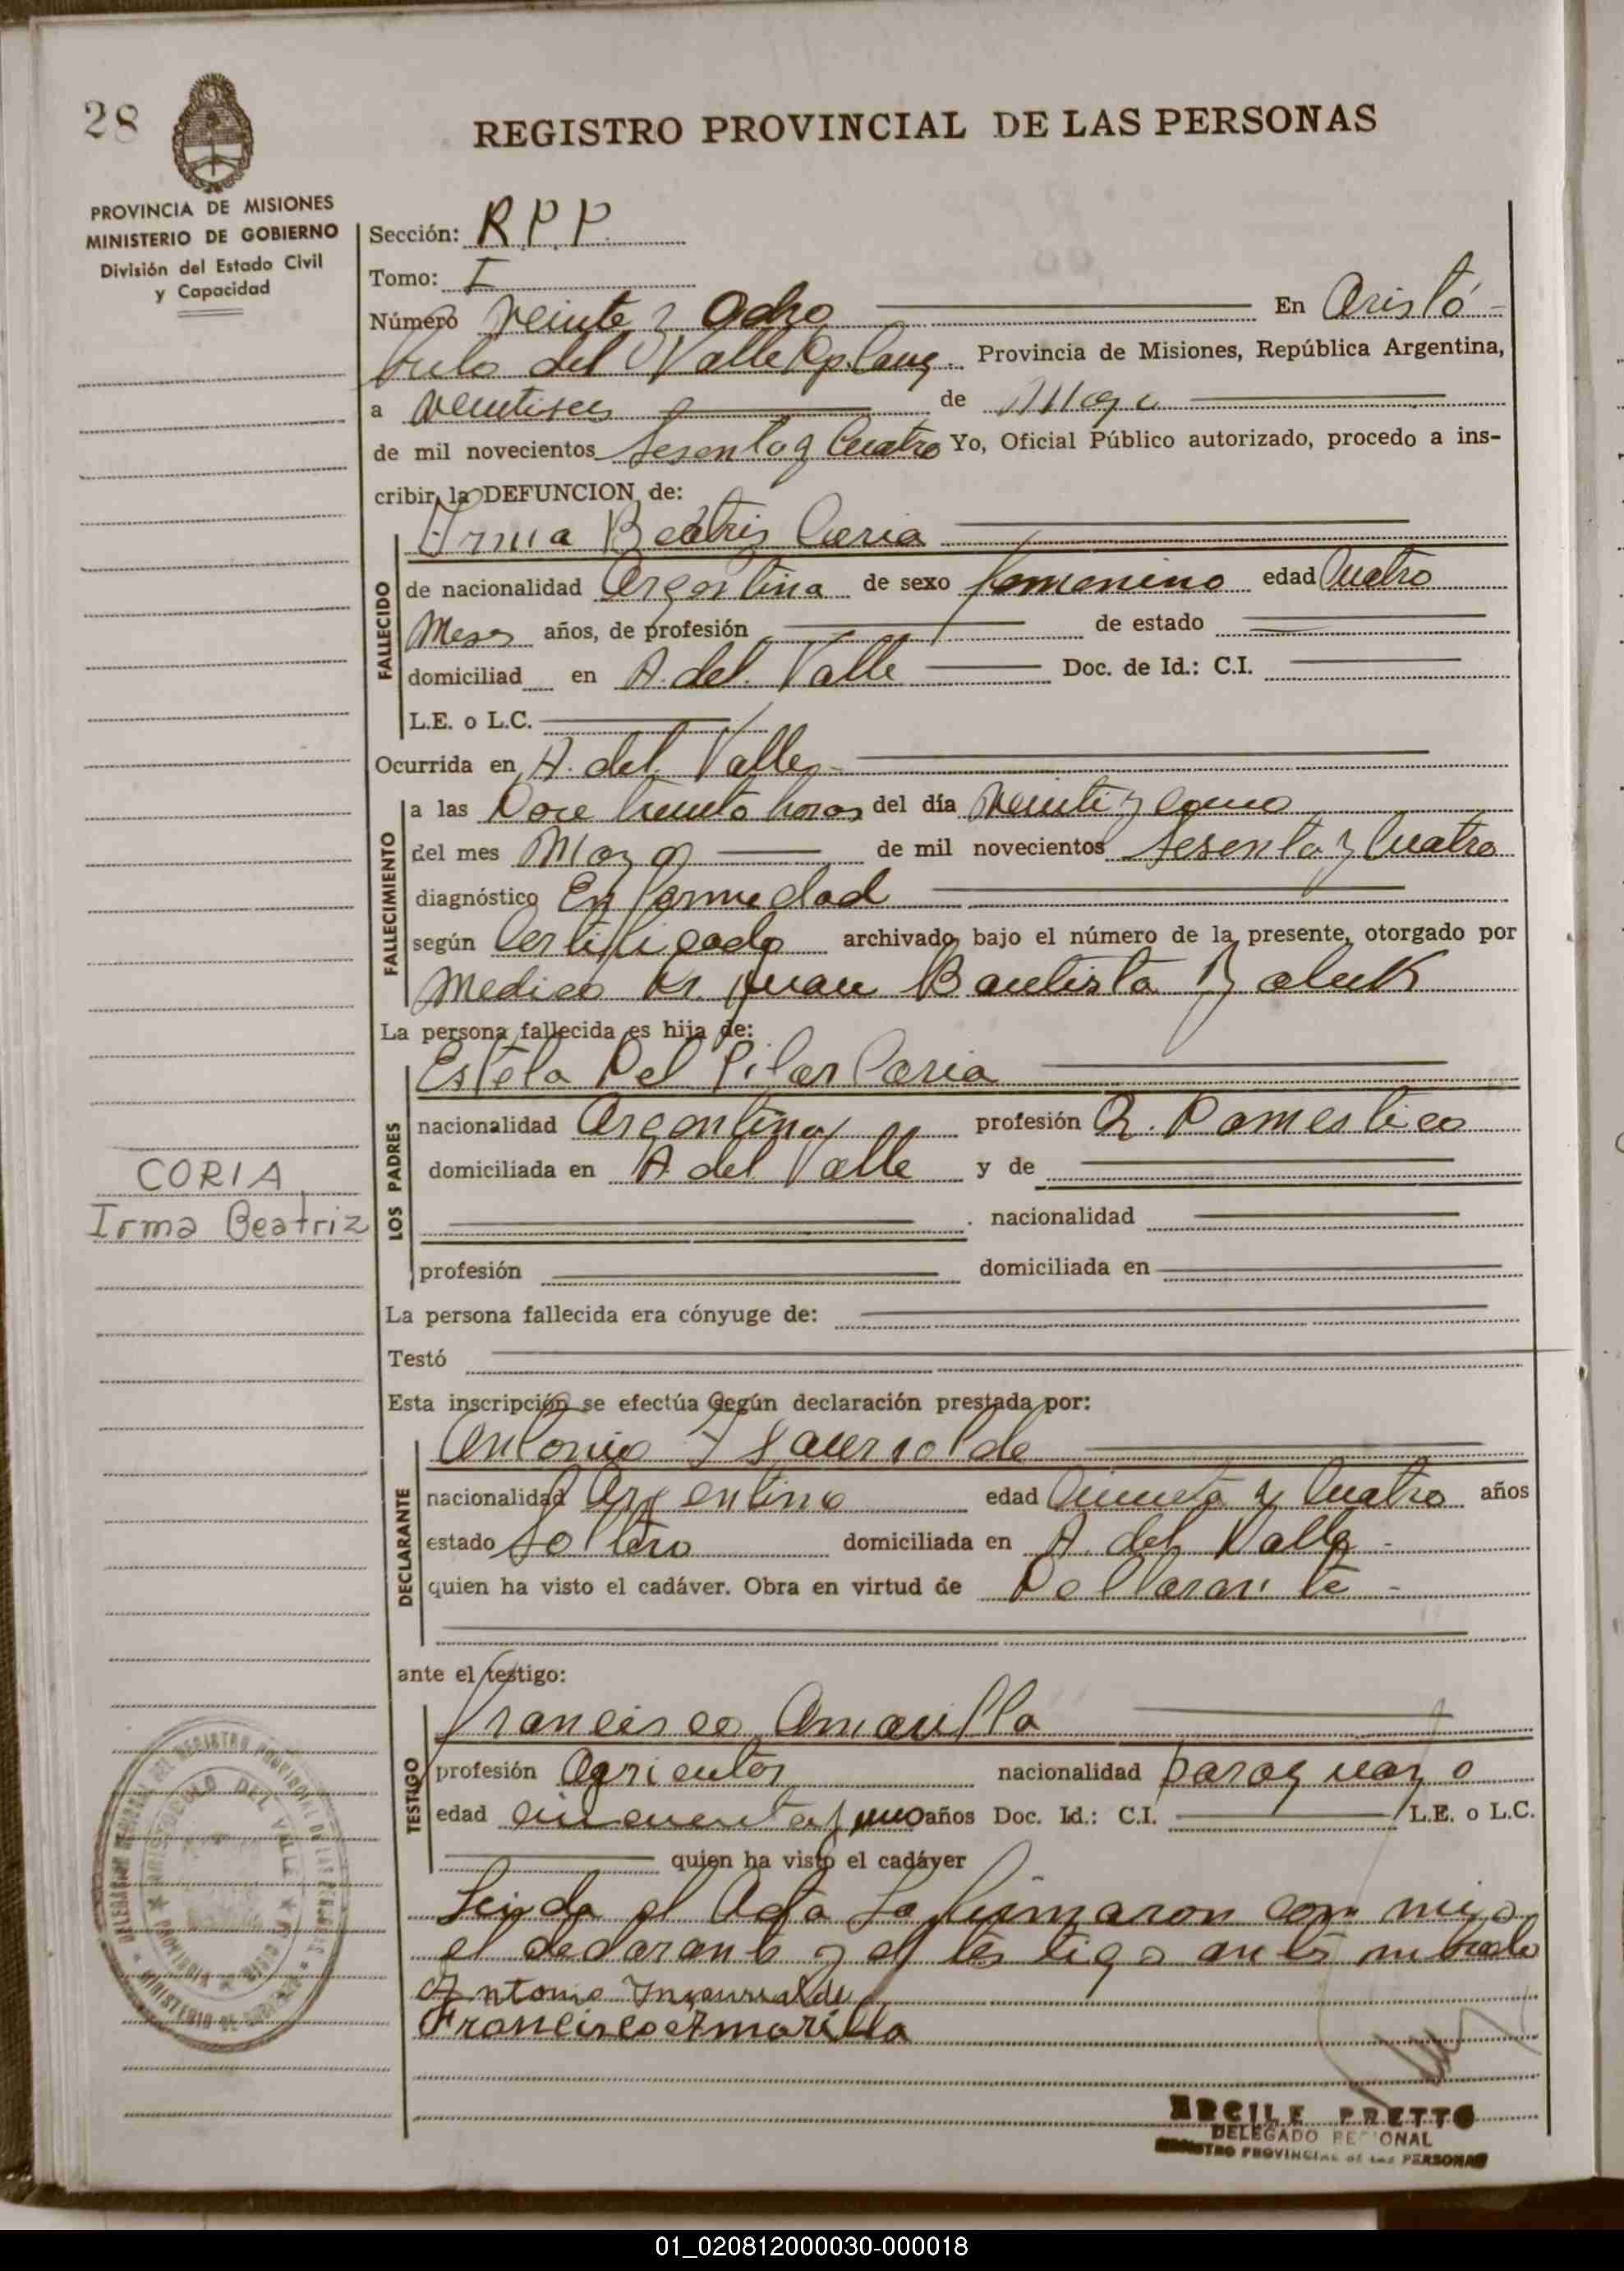 28
REGISTRO PROVINCIAL DE LAS PERSONAS
PROVINCIA DE MISIONES
MINISTERIO DE GOBIERNO
División del Estado Civil
y Capacidad
Sección: R.P.P.
Tomo: I
Número veinte y Ocho En Aristó-
bulo del Valle Dp. Provincia de Misiones, República Argentina,
a veintiseis de Mayo
de mil novecientos Sesenta y Cuatro Yo, Oficial Público autorizado, procedo a ins-
cribir la DEFUNCION de:
Irma Beatris Coria
FALLECIDO
de nacionalidad Argentina de sexo femenino edad Cuatro
Meses años, de profesión de estado
domiciliad en A. del Valle Doc. de Id.: C.I.
L.E. o L.C.
Ocurrida en A. del Valle-
FALLECIMIENTO
a las Doce treinta horas del día veinti y cinco
del mes Mayo de mil novecientos Sesenta y Cuatro
diagnóstico Enfermedad
según Certificado archivado bajo el número de la presente, otorgado por
Medico Dr. Juan Bautista
La persona fallecida es hija de:
Estela Del Pilar Coria
LOS PADRES
nacionalidad Argentina profesión Q. Domestico
domiciliada en A. del Valle y de
. nacionalidad
CORIA
Irma Beatriz
profesión domiciliada en
La persona fallecida era cónyuge de:
Testó
Esta inscripción se efectúa según declaración prestada por:
Antonio
DECLARANTE
nacionalidad Argentino edad y Cuatro años
estado Soltero domiciliada en A. del Valle -
quien ha visto el cadáver. Obra en virtud de Declarante -
ante el testigo:
Francisco Amarilla
TESTIGO
profesión Agricultor nacionalidad paraguayo
edad cincuenta y uno años Doc. Id.: C.I. L.E. o L.C.
quien ha visto el cadáver
Leida el Acta La firmaron con migo
el declarante y el testigo
Antonio Insaurralde
Francisco Amarilla
ERCILE PRETTO
DELEGADO REGIONAL
REGISTRO PROVINCIAL DE LAS PERSONAS
01_020812000030-000018